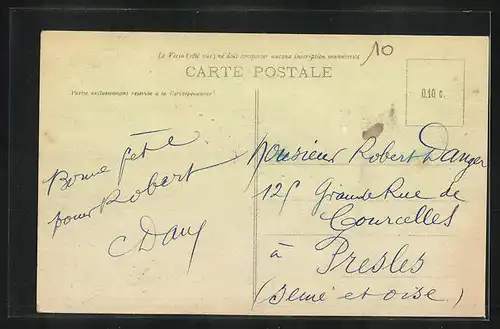 Le Verso (côté vue) ne doit comporter aucune inscription manuscrite
10
CARTE POSTALE
Partie exclusivement réservée à la Correspondance
0.10 c.
Bonne fête
pour Robert
Monsieur Robert Danger
125 Grande Rue de
Courcelles
à
Presles
(Seine et Oise)